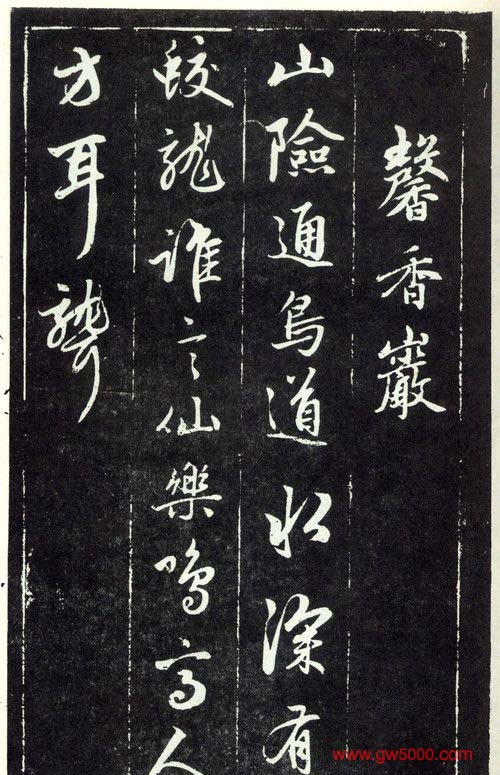 馨香巖
山險通鳥道水深有
蛟龍誰言仙樂鳴高人
方耳聾
www.gw5000.com